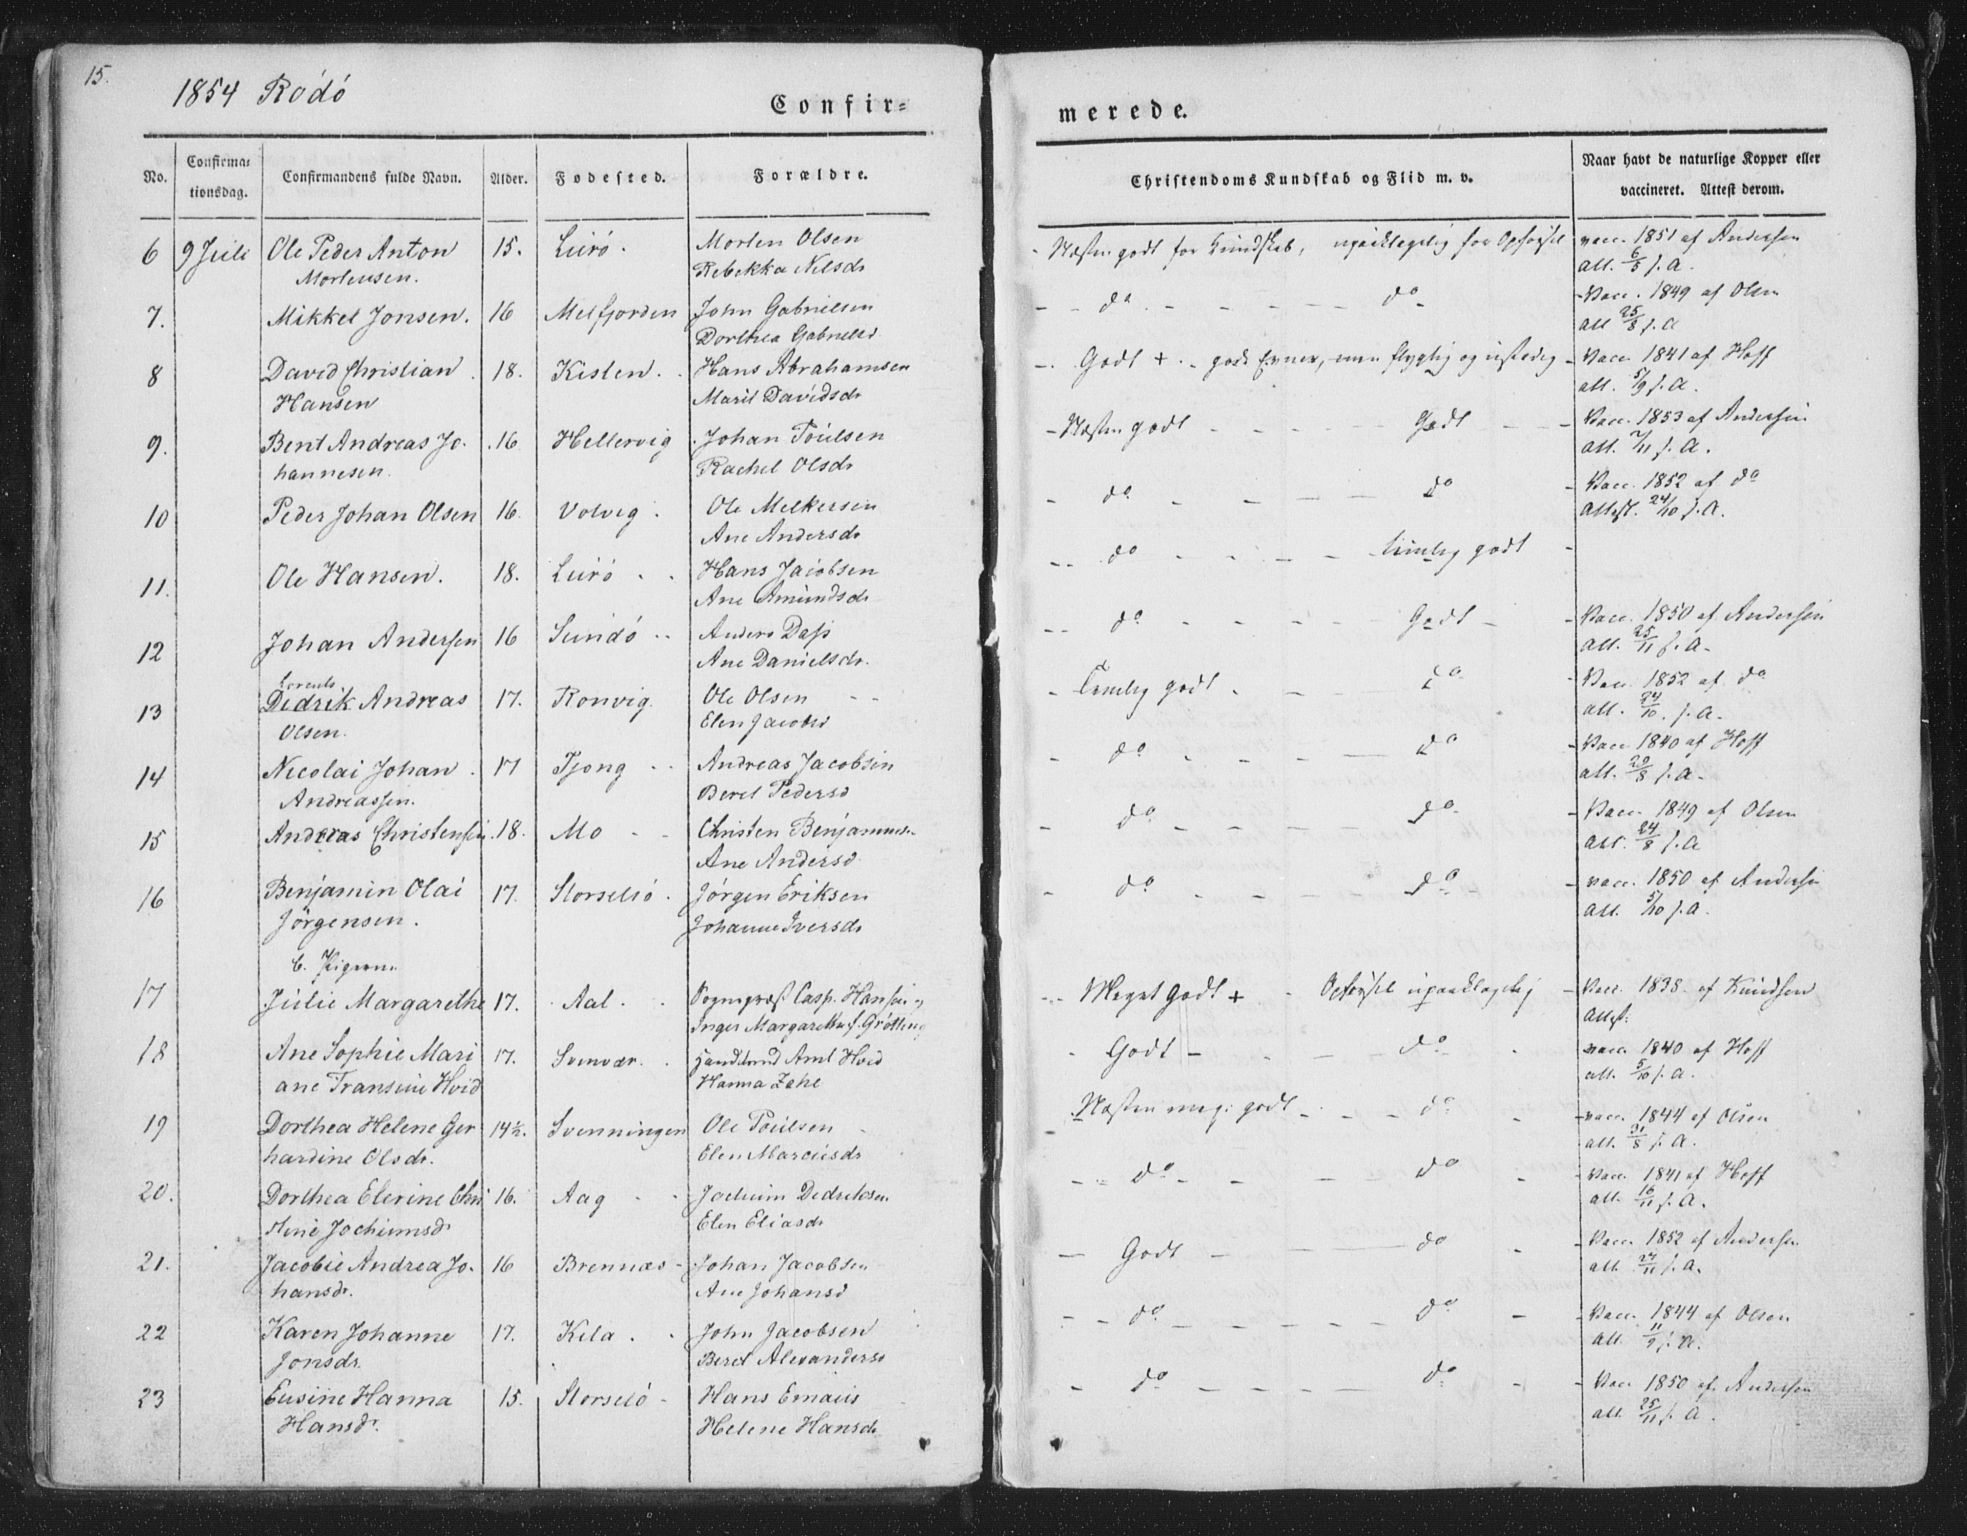 15.
1854 Rödö
Confir=
merede.
No.
Confirma=
tionsdag.
Confirmandens fulde Navn.
Alder.
Fødested.
Forældre.
Christendoms Kundskab og Flid m. v.
Naar havt de naturlige Kopper eller
vaccineret. Attest derom.
6 9 Juli Ole Peder Anton 15. Lurö. Morten Olsen Næsten godt for Kundskab, upaaklagelig for Opförsel vacc. 1851 af Andersen
Mortensen. Rebekka Nilsdr att. 6/5 s. A.
7. Mikkel Jonsen. 16 Melfjorden John Gabrielsen do do Vacc. 1849 af Olsen
Dorthea Gabrielsd att 25/8 s. A
8 David Christian 18. Kisten. Hans Abrahamsen Godt + gode Evner, men flygtig og ustadig Vacc. 1841 af Hoff
Hansen Marit Davidsdr att. 5/9 s. A.
9. Bent Andreas Jo- 16 Hellervig Johan Toulsen Næsten godt Godt Vacc. 1853 af Andersen
hannesen. Rachel Olsdr att. 7/11 s. A.
10 Peder Johan Olsen 16. Volvig. Ole Melkersen do do Vacc. 1852 af do
Ane Andersdr Attest. 24/10 s. A.
11. Ole Hansen. 18. Lurö Hans Jacobsen do temlig godt
Ane Amundsdr
12 Johan Andersen 16 Sundö Anders Dass do Godt Vacc. 1850 af Andersen
Ane Danielsdr. att. 25/11 s. A.
Lorents
13 Didrik Andreas 17. Ronvig. Ole Olsen Temlig godt do Vacc. 1852 af do
Olsen. Elen Jacobsd att. 24/10 s. A.
14 Nicolai Johan 17 Tjong Andreas Jacobsen do do Vacc. 1840 af Hoff
Andreassen. Beret Pedersd att. 29/8 s. A.
15 Andreas Christensen 18. Mo Christen Benjaminsen do do Vacc. 1849 af Olsen
Ane Andersd att. 24/8 s. A
16 Benjamin Olai 17. Storselsö Jörgen Eriksen do do vacc. 1850 af Andersen
Jörgensen. Johanne Iversdr att. 5/10 s. A.
b. Pigerne
17 Julie Margarethe 17. Aal. Sogneprest Casp. Hansen og Meget Godt + Opförsel upaaklagelig Vacc. 1838 af Knudsen
Inger Margarethe f. Grötting Attest.
18 Ane Sophie Mari 17. Svinvær. Handelsmd Amt Hvid Godt do vacc. 1840 af Hoff
ane Transine Hvid Hanna Zahl att. 5/10 s. A.
19 Dorthea Helene Ger 14½. Svenningen Ole Poulsen Næsten meg. godt do vacc. 1844 af Olsen
hardine Olsdr. Elen Marcusdr att. 31/8 s. A.
20. Dorthea Elerine Chri 16. Aag Jochum Dedriksen do do Vacc. 1841 af Hoff
stine Jochumsdr Elen Eliasdr att. 16/11 s. A.
21. Jacobie Andrea Jo- 16 Brennæs Johan Jacobsen Godt do Vacc. 1852 af Andersen
hansdr. Ane Johansd att. 24/11 s. A.
22 Karen Johanne 17. Kila. John Jacobsen do do Vacc. 1844 af Olsen
Jonsdr. Beret Alexandersd att. 11/9 s. A.
23 Eusine Hanna 15. Storselö Hans Emaus do do Vacc 1850 af Andersen
Hansdr. Helene Hansdr att. 25/11 s. A.